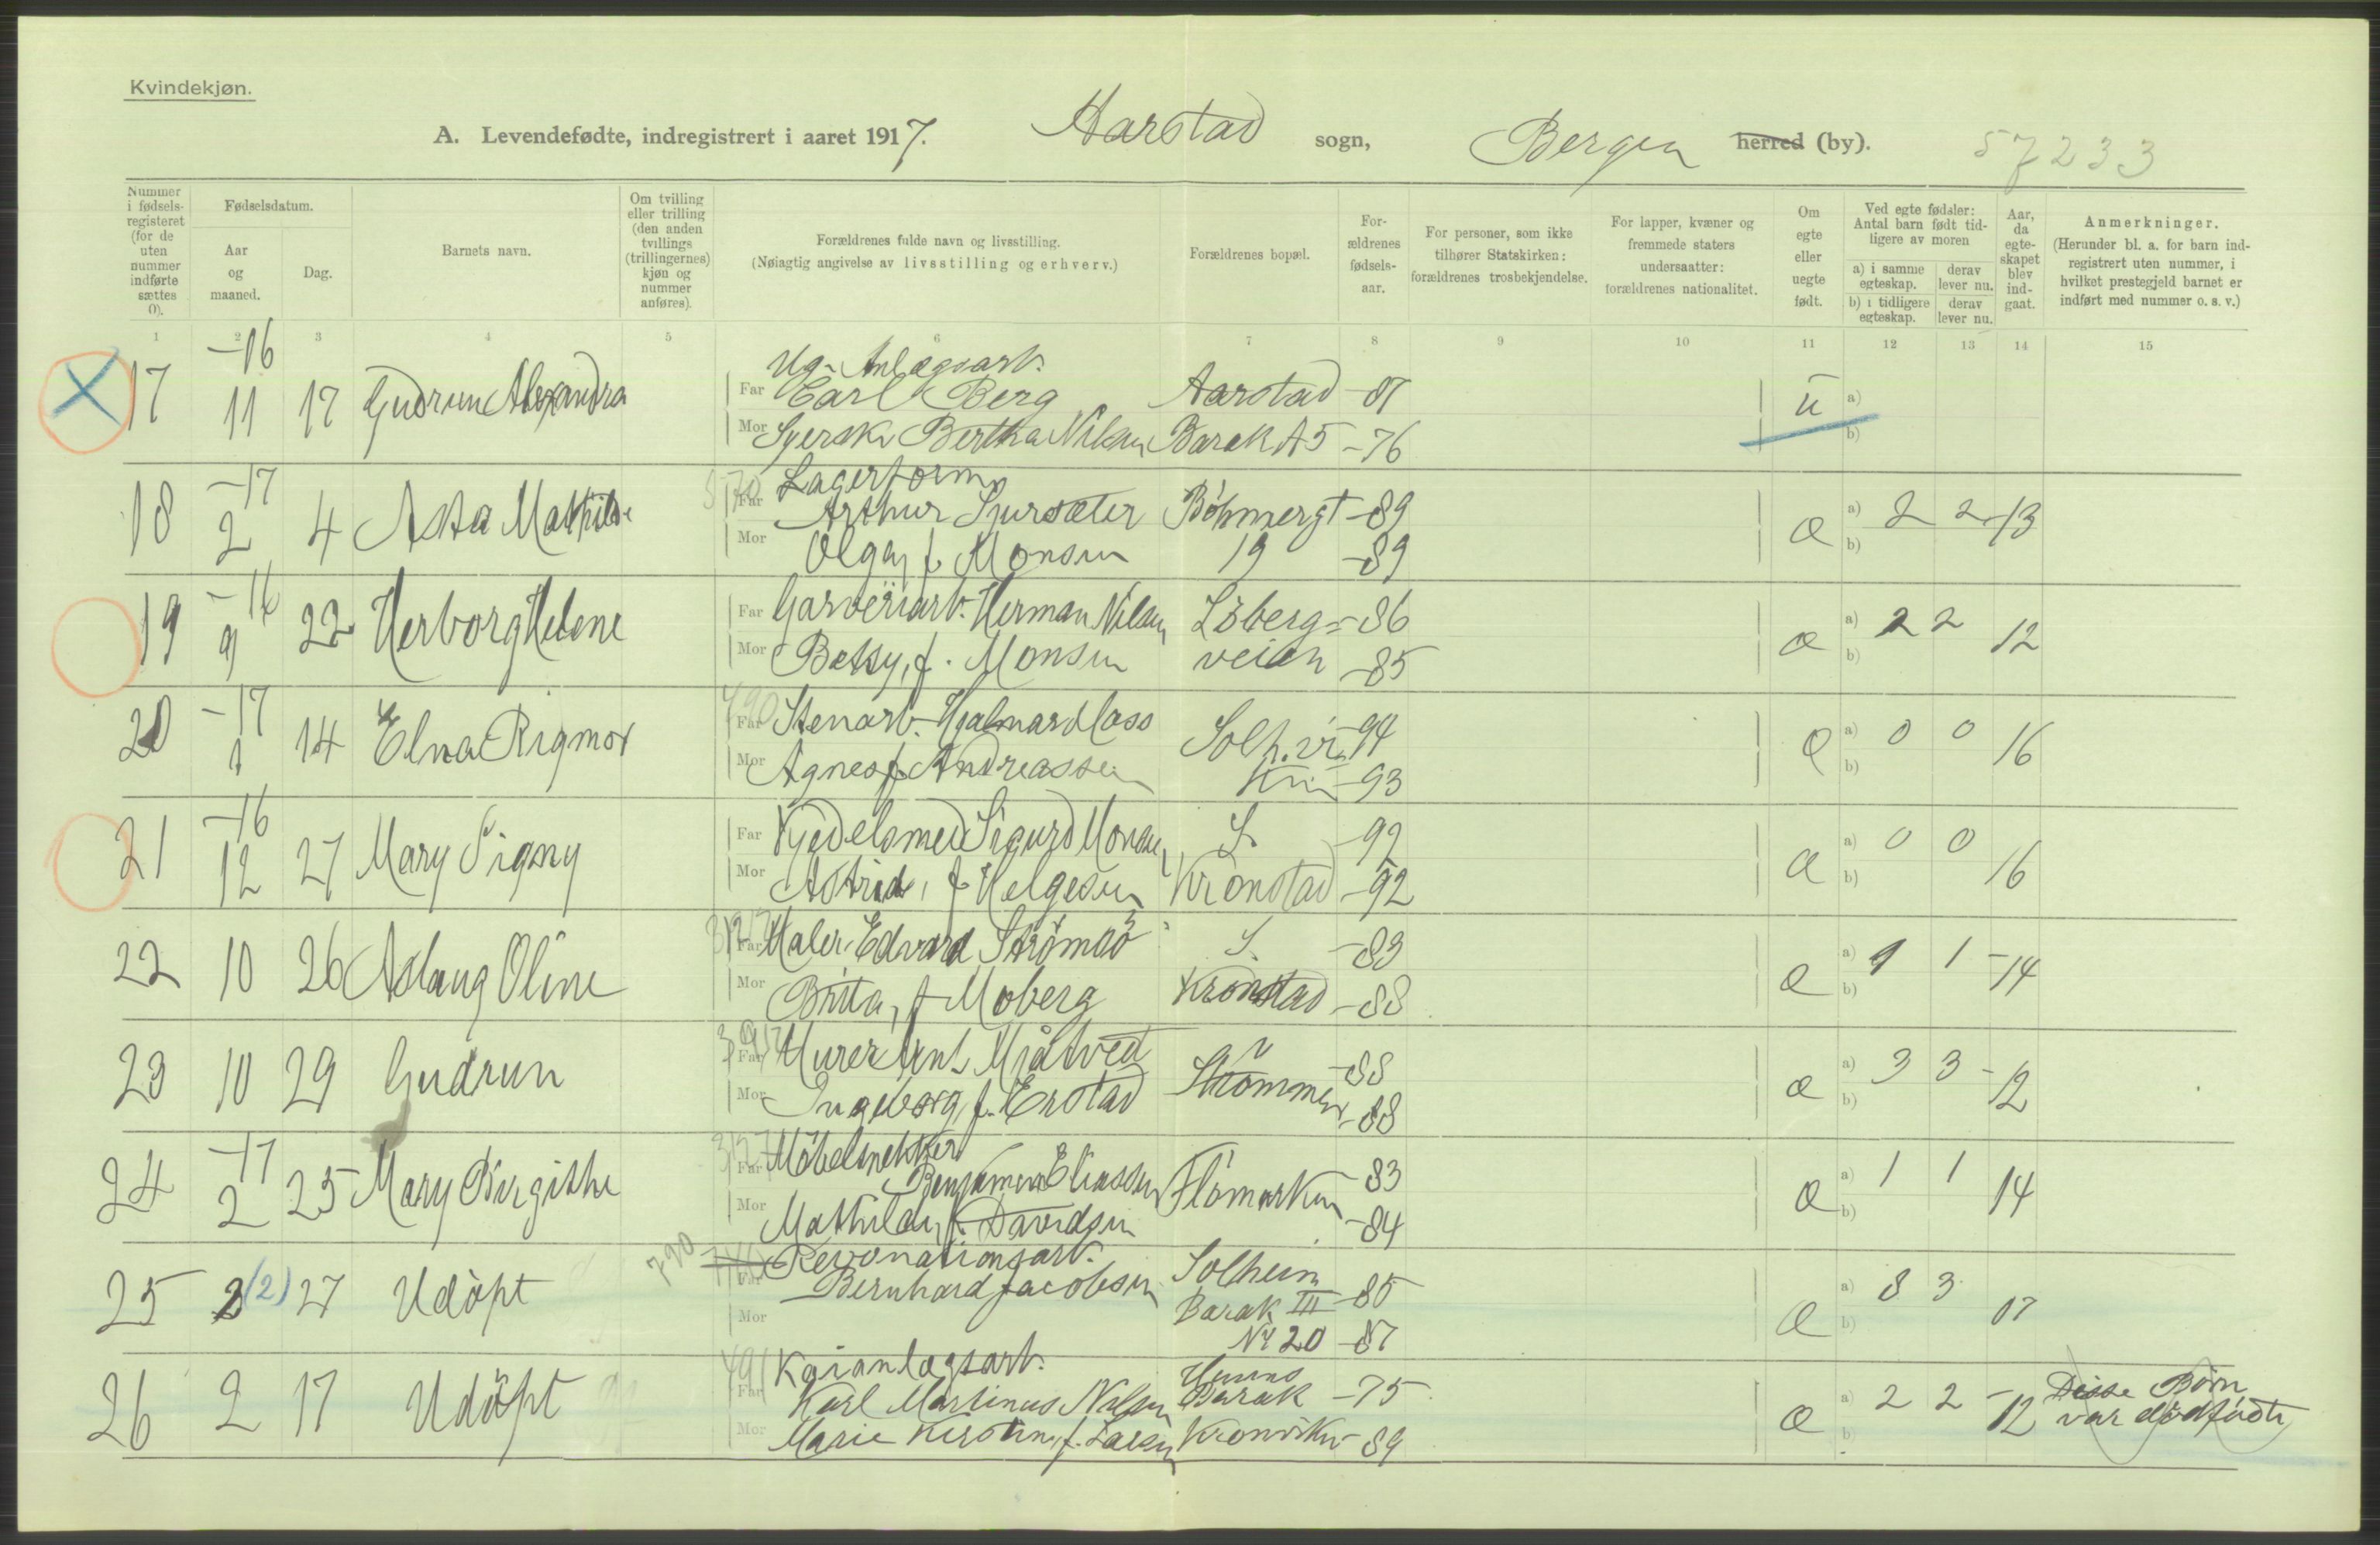 Kvindekjøn.
A. Levendefødte, indregistrert i aaret 1917. Aarstad sogn, Bergen herred (by). 57233
Nummer i fødsels-registeret (for de uten nummer indførte sættes 0).
Fødselsdatum.
Aar og maaned.
Dag.
Barnets navn.
Om tvilling eller trilling (den anden tvillings (trillingernes) kjøn og nummer anføres).
Forældrenes fulde navn og livsstilling.
(Nøiagtig angivelse av livsstilling og erhverv.)
Forældrenes bopæl.
For-ældrenes fødsels-aar.
For personer, som ikke tilhører Statskirken: forældrenes trosbekjendelse.
For lapper, kvæner og fremmede staters undersaatter: forældrenes nationalitet.
Om egte eller uegte født.
Ved egte fødsler: Antal barn født tid-ligere av moren
a) i samme egteskap. derav lever nu.
b) i tidligere egteskap. derav lever nu.
Aar, da egte-skapet blev ind-gaat.
Anmerkninger.
(Herunder bl. a. for barn ind-registrert uten nummer, i hvilket prestegjeld barnet er indført med nummer o. s. v.)
1 2 3 4 5 6 7 8 9 10 11 12 13 14 15
-16 Ug. Anlægsarb.
17 11 17 Gudrun Alexandra Far Carl Berg Aarstad -87 u a)
Mor Syerske Bertha Nilsen Barak A5 -76 b)
-17 Lagerform
18 2 4 Asta Mathilde Far Arthur Sjursæter Böhmergt -89 a) 2 2 -13
Mor Olga, f. Monsen 19 -89 b)
19 -16 9 22 Herborg Helene Far Garveriarb. Herman Nilsen Löberg= -86 a) 2 2 12
Mor Betsy, f. Monsen veien -85 b)
20 -17 1 14 Elna Rigmor Far Stenarb. Hjalmar Solh.v. -94 a) 0 0 16
Mor Agnes f. Andreassen -93 b)
21 -16 12 27 Mary Signy Far Kjedelsmed Sigurd Monsen -92 a) 0 0 16
Mor Astrid, f. Helgesen Kronstad -92 b)
22 10 26 Aslaug Oline Far Maler Edvard Strömsö -83 a) 1 1 -14
Mor Brita, f. Moberg Kronstad -88 b)
23 10 29 Gudrun Far Murer Mjåtved -88 a) 3 3 -12
Mor Ingeborg, f. Erstad Strömmen -88 b)
24 -17 2 25 Mary Birgithe Far Möbelsnekker
Benjamin Eliassen Flömarken 83 a) 1 1 14
Mor Mathilde, f. Davidsen -84 b)
790 Solheim
25 2 (2) 27 Udöpt Far Bernhard Jacobsen Barak III -85 a) 3 07
Mor No 20 -87 b)
491 Kaianlægsarb.
26 2 17 Udöpt Far Karl Martinus Nilsen Barak -75 a) 2 2 -12 Disse Börn
Mor Marie Kirstine, f. Larsen Kronviken -89 b) var dödfödte